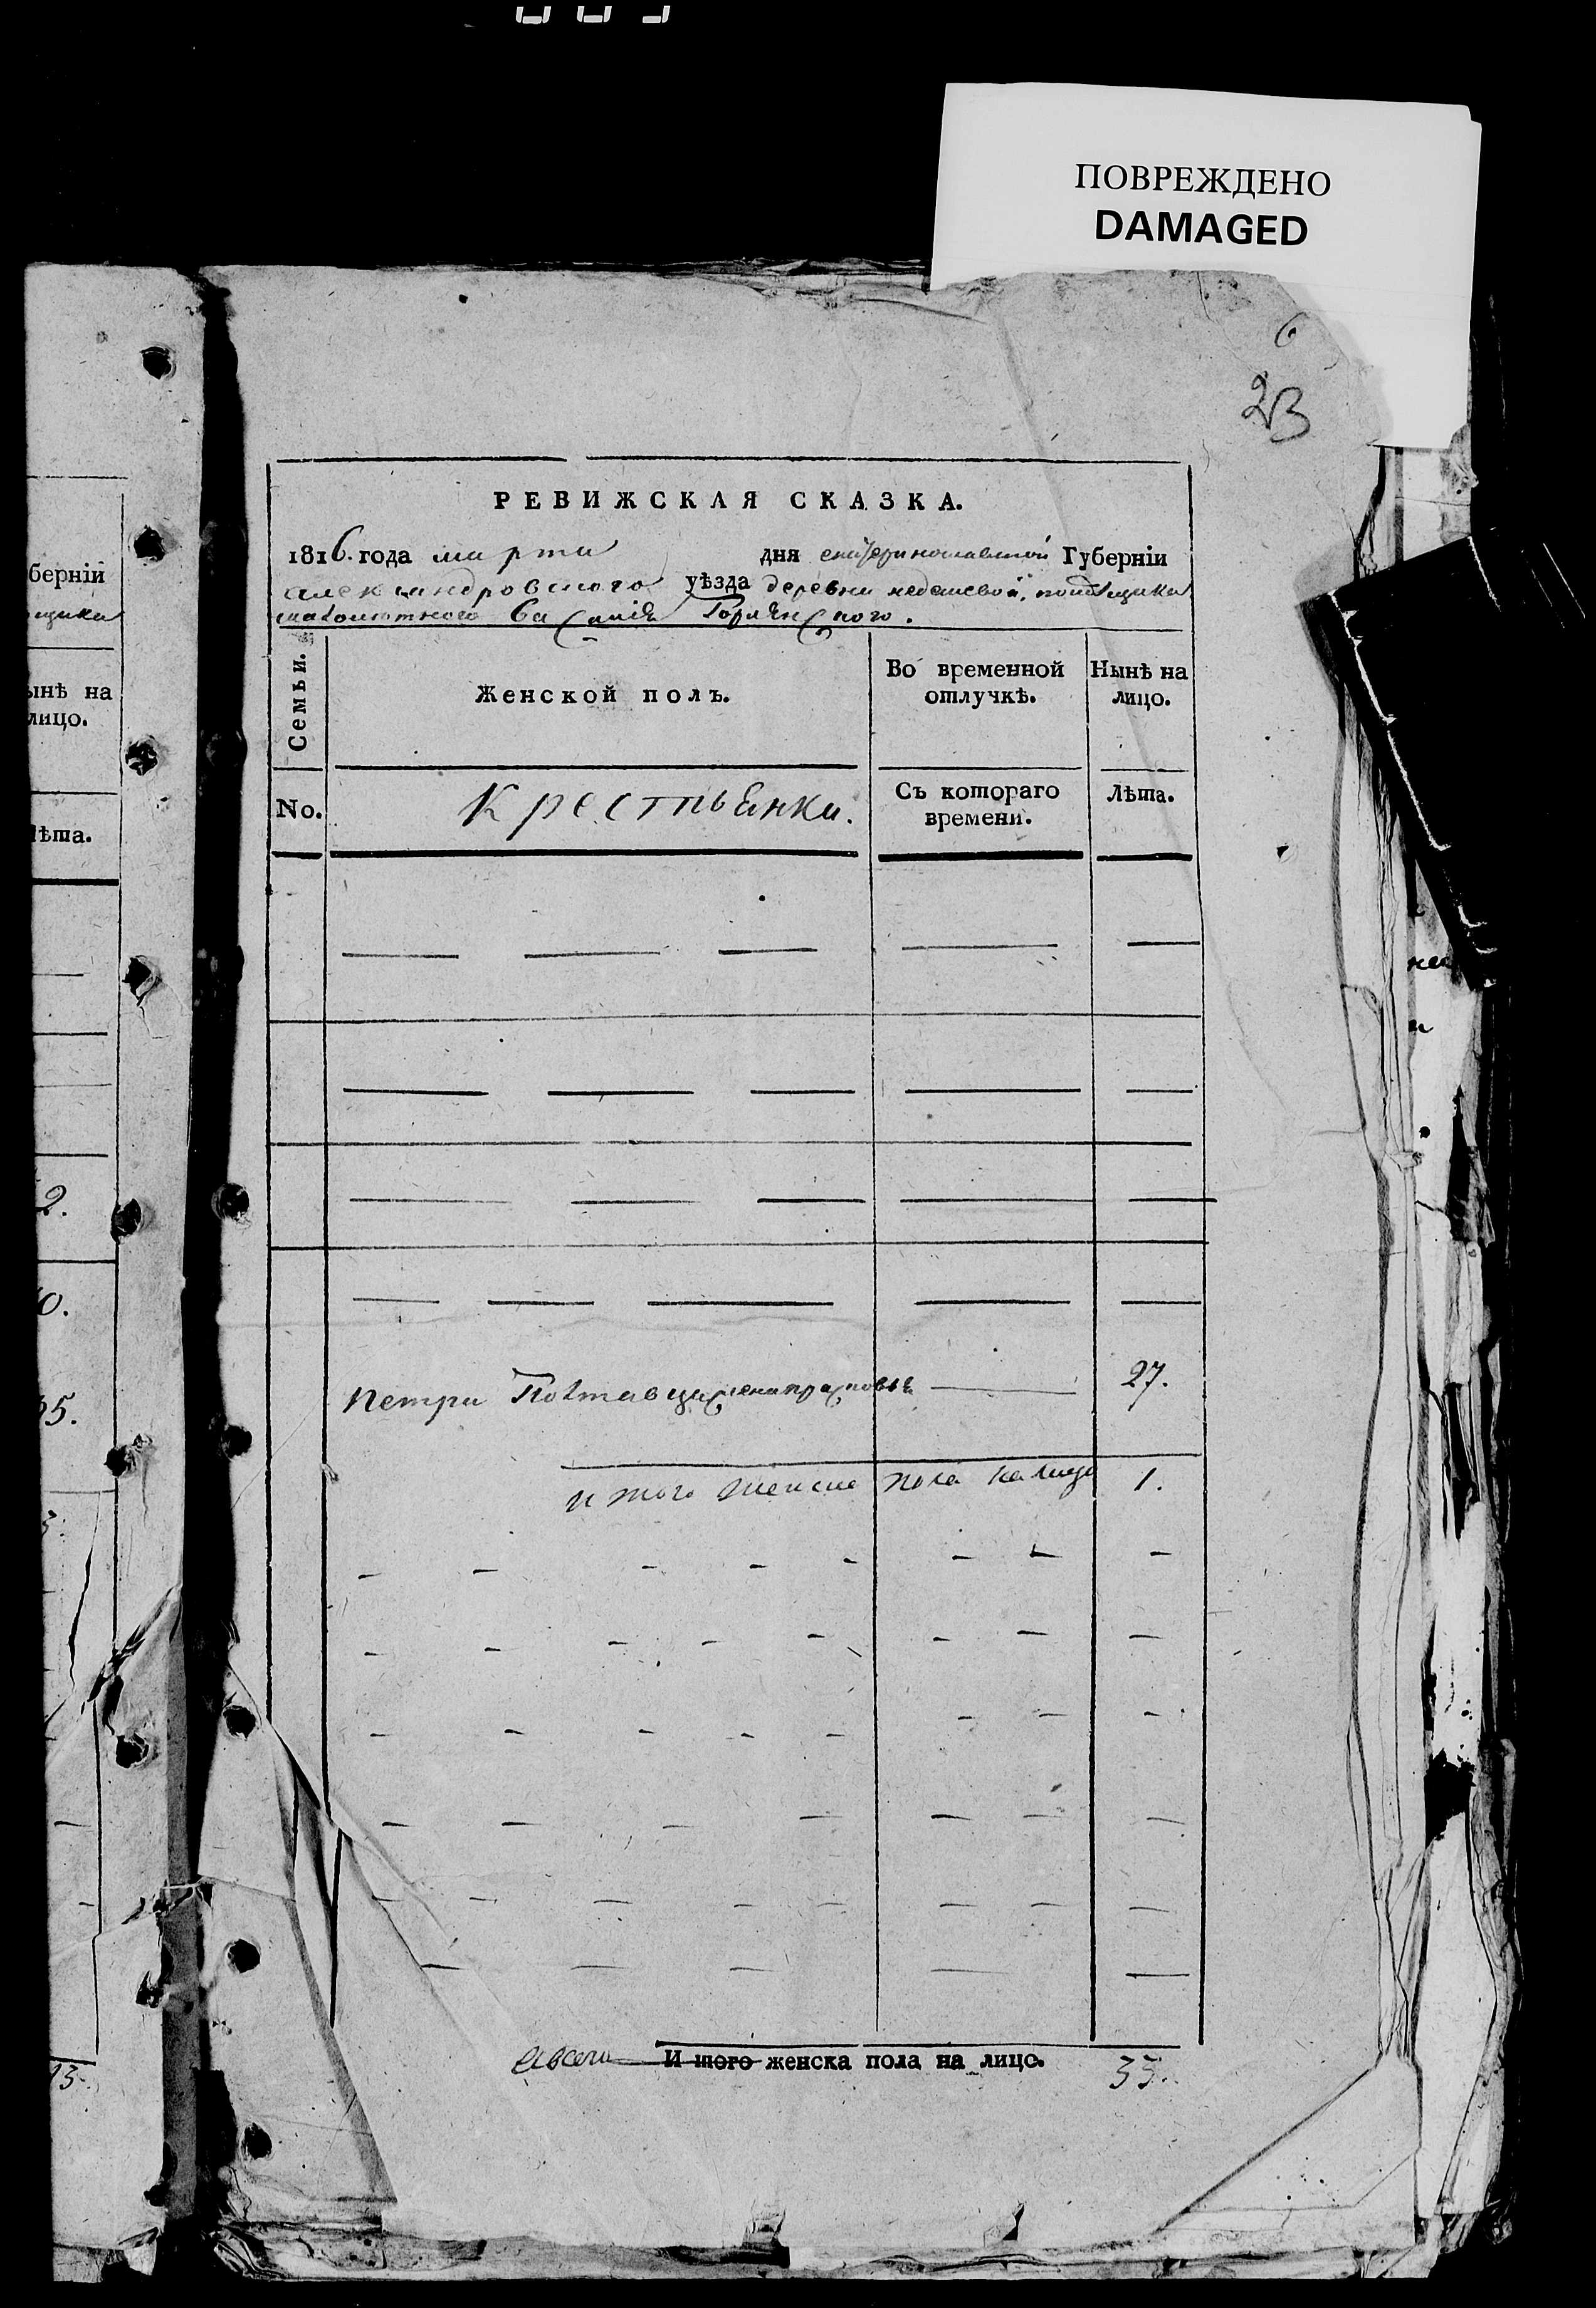 ПОВРЕЖДЕНО
DAMAGED
6
23
РЕВИЖСКАЯ СКАЗКА.
1816. года марта дня екатеринославской Губерніи
александровского уѣзда деревни помѣщика
Горленского.
Семьи.
Женской полъ.
Во временной отлучкѣ.
Нынѣ на лицо.
No.
Крестьянки.
Съ котораго времени.
Лѣта.
Петра Полтавца жена 27.
итого женска пола на лицо 1.
авсего И того женска пола на лицо. 35.
берніи
щика
ынѣ на
лицо.
ѣта.
2.
0.
35.
3.